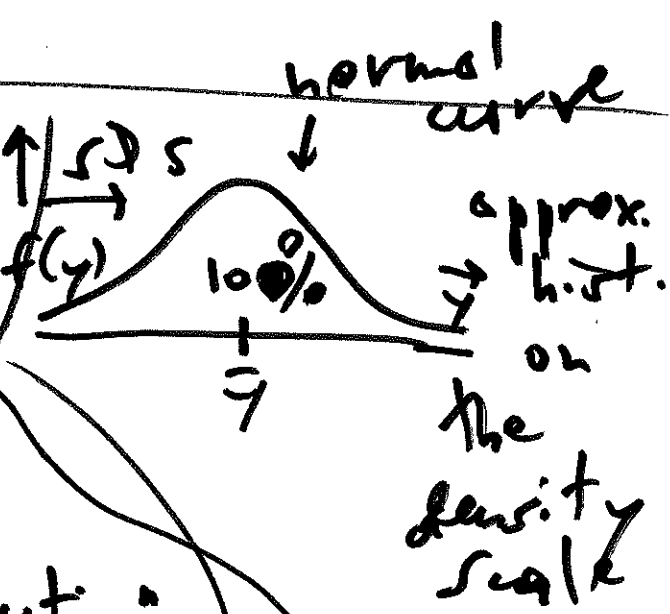 normal
curve
SD s
f(y)
100%
ȳ
y
approx.
hist.
on
the
density
scale